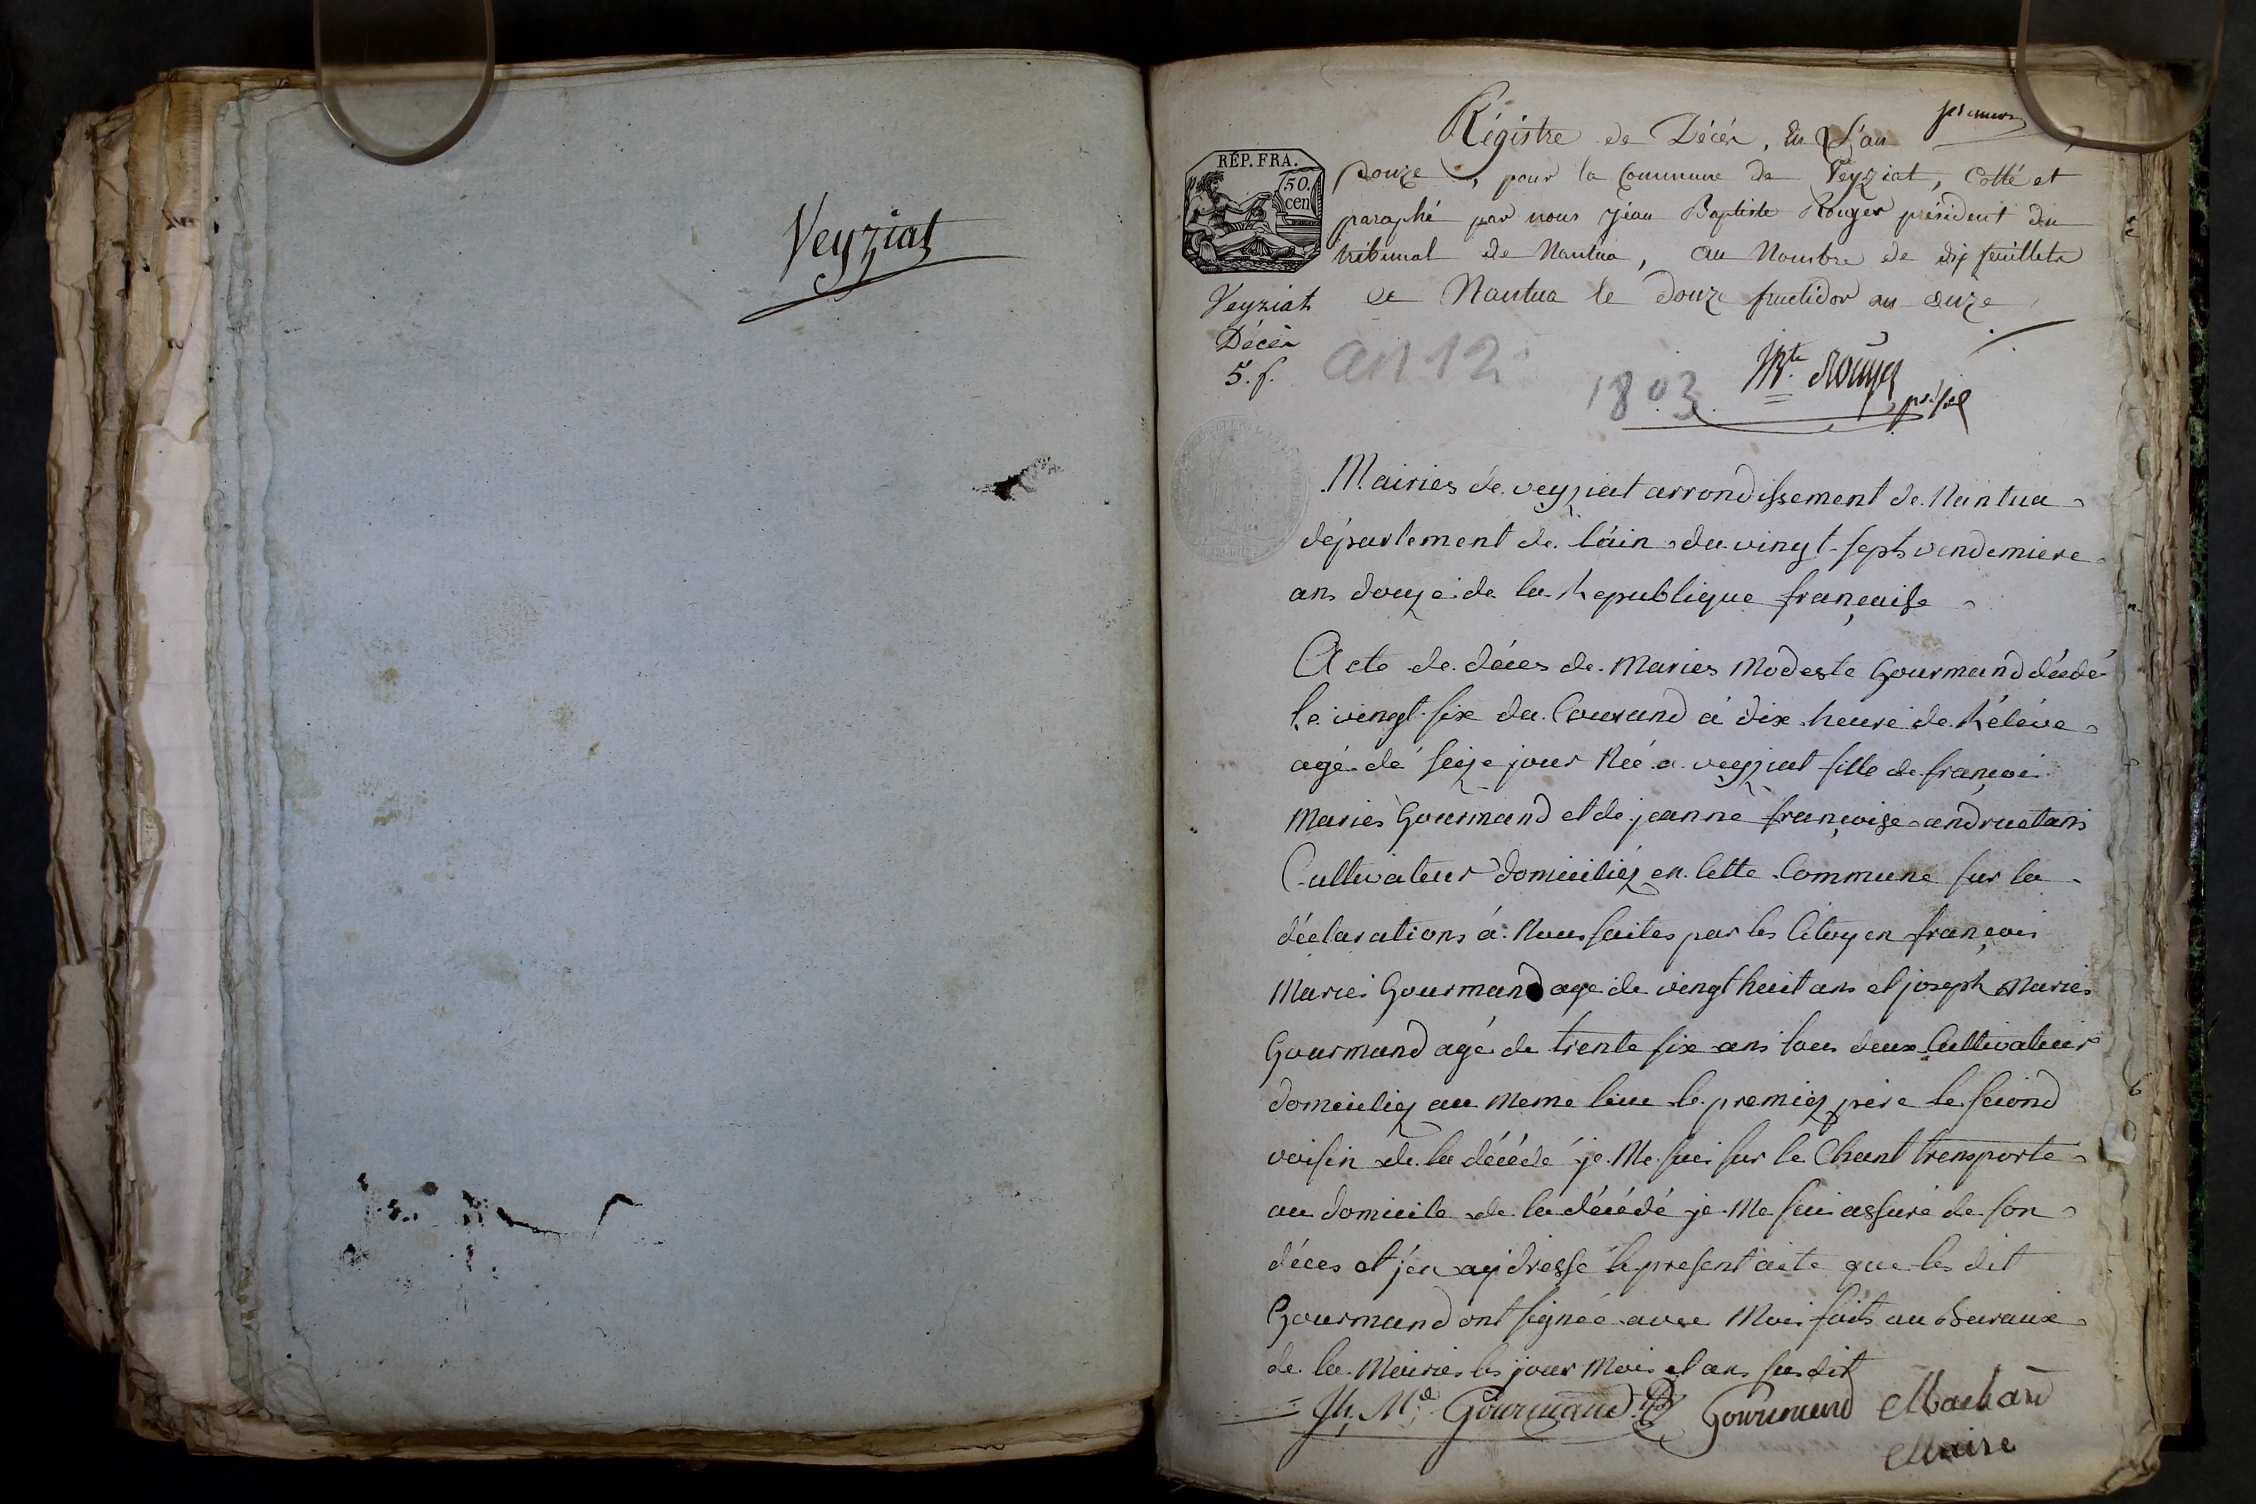 Veyziat
premier
Régistre de Décés, En L'an
Douze, pour la Commune de Veyziat, Cotté et
paraphé par nous Jean Baptiste Rouyer président du
tribunal de Nantua, au Nombre de dix feuillets
RÉP. FRA.
50.
cen
Veyziat
Décés
5. f.
De Nantua le douze fructidor an onze
an 12
1803
Bte Rouyer
présid
Mairies de veyziat arrondissement de Nantua
département de l'áin du vingt-septs vendemiere
ans douze de la Republique françaisse
Acte de déces de Maries Modeste Gourmand décédé
le vingt-six du Courand á dix heure de Réléve
agé dé seize jour Née a veyziat fille de françoi
Maries Gourmand et de jeanne françoise andruetans
Cultivateur domiciliéz en Cette Commune sur la
déclarations á Nous faites par les Citoyen françois
Maries Gourmand age de vingt huit ans et joseph Maries
Gourmand agé de trente six ans tous deux Cultivateur
domiciliez au Meme lieu le premiez pere le second
voisin de la décédé je Me sui sur le Chant transporte
au domicile de la décédé je Me sui assuré de son
déces et j'en ay dressé le present acte que les dit
Gourmand ont signée avec Moi faits au Buraux
de la Mairies les jour Mois et an susdit
Jh. Mie Gourmand Gourmand
Maire